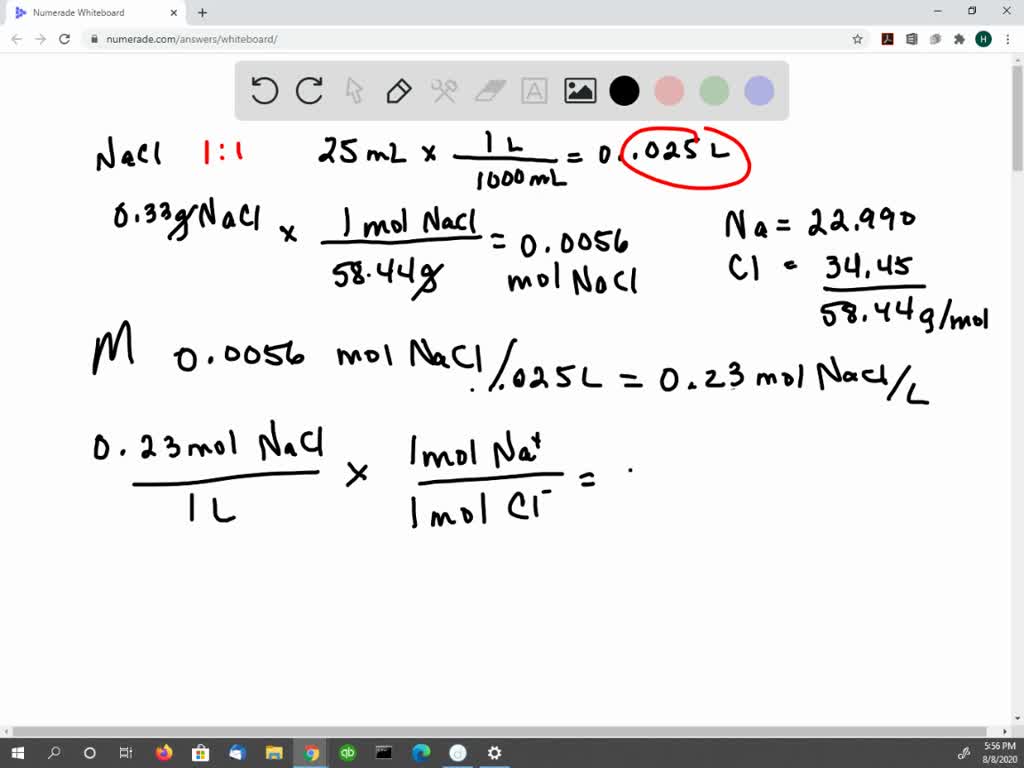 Numerade Whiteboard
numerade.com/answers/whiteboard/
H
A
NaCl 1:1 25 mL x 1 L / 1000 mL = 0.025 L
0.33g NaCl x 1 mol NaCl / 58.44g = 0.0056 mol NaCl
Na = 22.990
Cl = 34.45
58.44 g/mol
M 0.0056 mol NaCl/.025L = 0.23 mol NaCl/L
0.23 mol NaCl / 1 L x 1 mol Na+ / 1 mol Cl- = .
qb
5:56 PM
8/8/2020